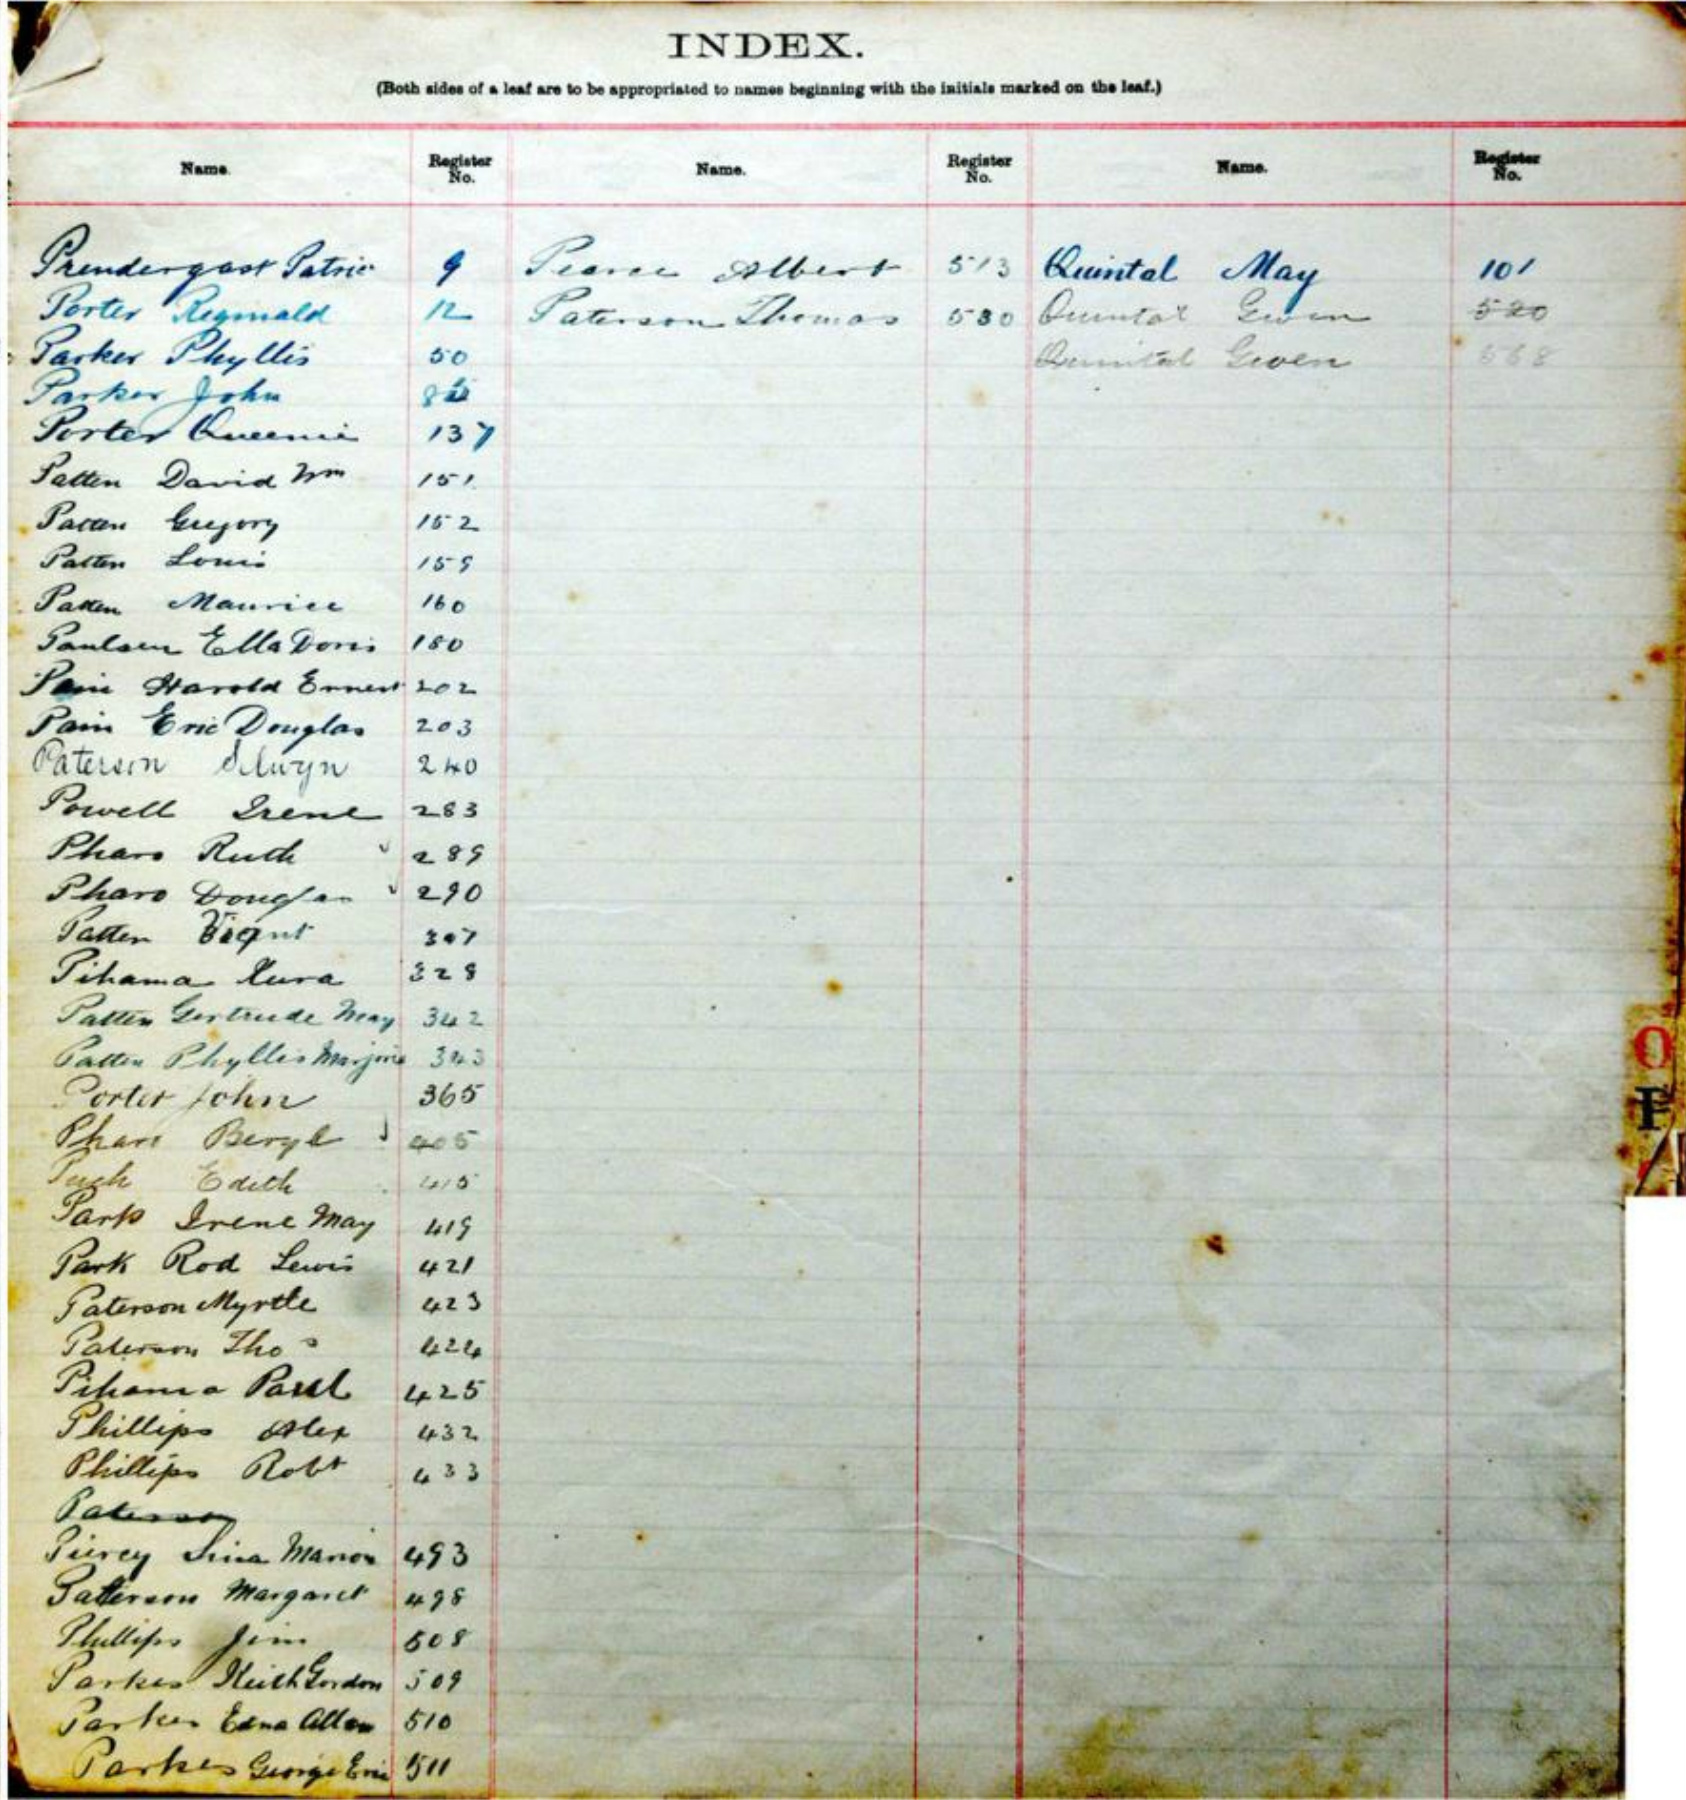 INDEX.
(Both sides of a leaf are to be appropriated to names beginning with the initials marked on the leaf.)
Name. Register No. Name. Register No. Name. Register No.
Prendergast Patric 9 Pearce Albert 513 Quintal May 101
Porter Reginald 12 Paterson Thomas 530 Quintal Gwen 520
Parker Phyllis 50 Quintal Gwen 568
Parker John
Porter Queenie 137
Patten David Wm 151
Patten Gregory 152
Patten Louis 159
Patten Maurice 160
Paulsen Ella Doris 180
Pain Harold Ernest 202
Pain Eric Douglas 203
Paterson Selwyn 240
Powell Irene 283
Pharo Ruth 289
Pharo Douglas 290
Patten 307
Pihama Kura 328
Patten Gertrude May 342
Patten Phyllis Marjorie 343
Porter John 365
Pharo Beryl 405
Edith 415
Park Irene May 419
Park Rod Lewis 421
Paterson Myrtle 423
Paterson Thos 424
Pihama Paul 425
Phillips Alex 432
Phillips Robt 433
Paterson
Piercy Marion 493
Patterson Margaret 498
Phillips Jim 508
Parkes Keith Gordon 509
Parkes Edna Allen 510
Parkes George Eric 511
P